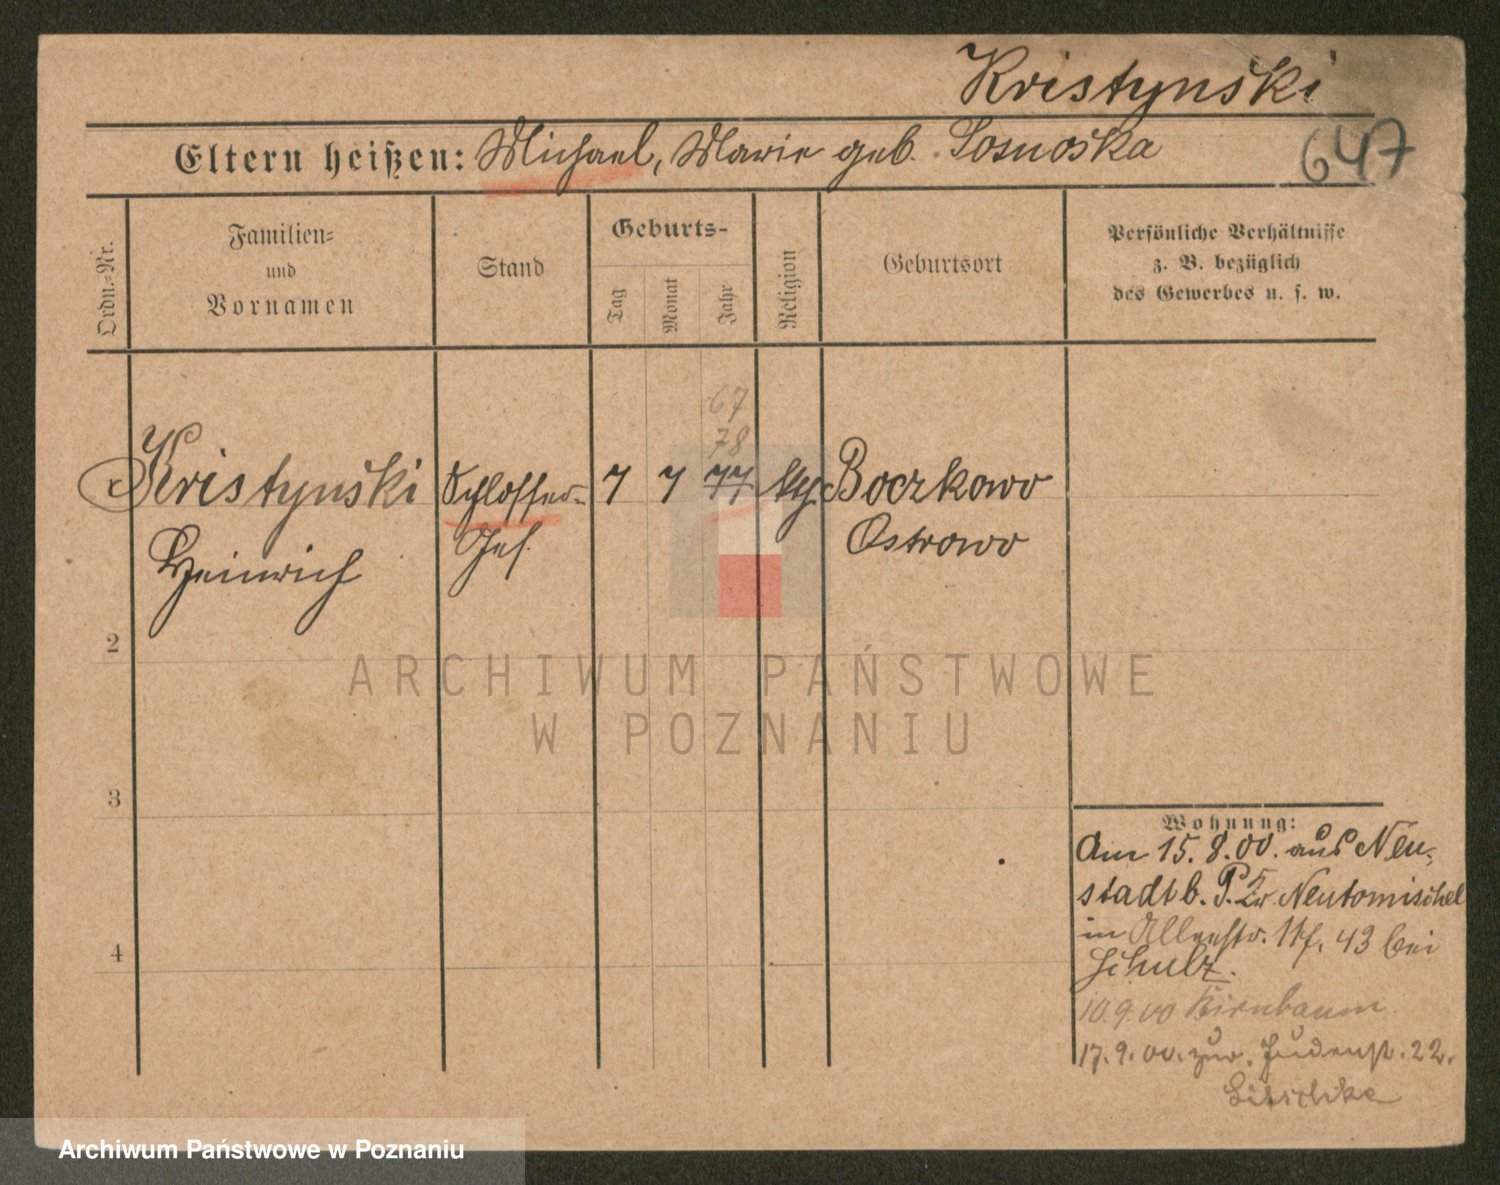 Kristynski
Eltern heißen: Michael, Marie geb. Sosnoska
647
Ordn.=Nr.
Familien=
und
Vornamen
Stand
Geburts-
Tag
Monat
Jahr
Religion
Geburtsort
Persönliche Verhältnisse
z. B. bezüglich
des Gewerbes u. s. w.
67
78
Kristynski
Heinrich
Schlosser-
Ges.
7
7
77
Boczkowo
Ostrowo
2
3
4
Wohnung:
Am 15.8.00. aus Neu-
stadt b. P. Kr. Neutomischel
in 43 bei
Schulz.
10.9.00 Birnbaum
17.9.00. zur. Judenst. 22.
ARCHIWUM PAŃSTWOWE
W POZNANIU
Archiwum Państwowe w Poznaniu